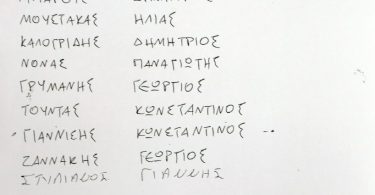 ΜΟΥΣΤΑΚΑΣ ΗΛΙΑΣ
ΚΑΛΟΓΡΙΔΗΣ ΔΗΜΗΤΡΙΟΣ
ΝΟΝΑΣ ΠΑΝΑΓΙΩΤΗΣ
ΓΡΥΜΑΝΗΣ ΓΕΩΡΓΙΟΣ
ΤΟΥΝΤΑΣ ΚΩΝΣΤΑΝΤΙΝΟΣ
ΚΩΝΣΤΑΝΤΙΝΟΣ
ΖΑΝΝΑΚΗΣ ΓΕΩΡΓΙΟΣ
ΣΤΙΛΙΑΝΟΣ ΓΙΑΝΝΗΣ